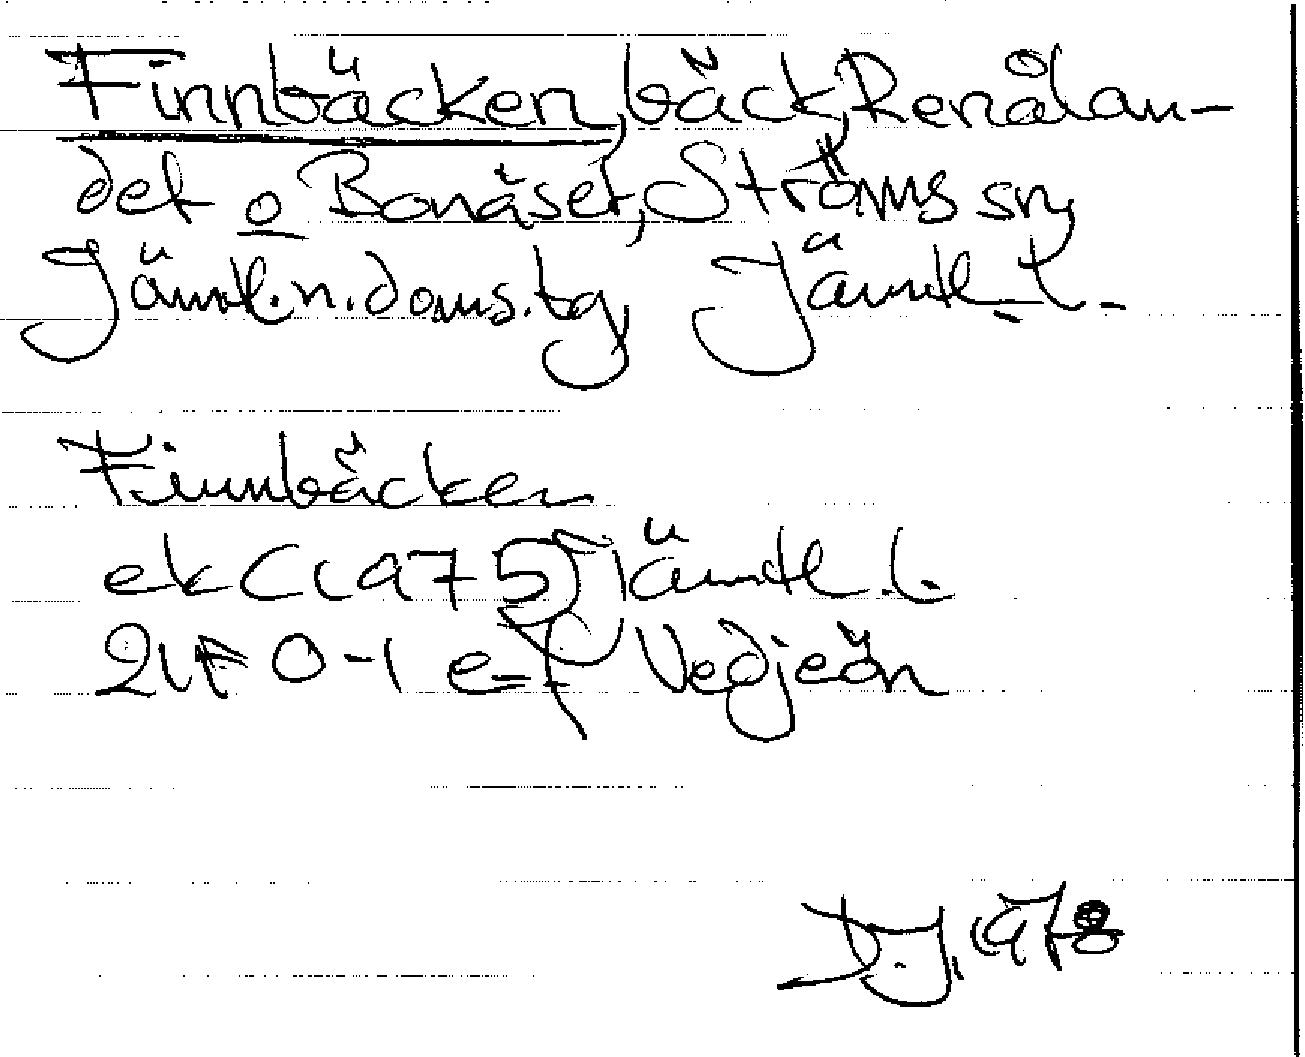 Finnbäcken, bäck, Renålan-
det o Bonäset, Ströms sn,
Jämtl. n. doms. tg, Jämtl. l.
Finnbäcken
ek (1975) Jämtl. l.
21F 0-1 e-f Vedjeön
D.J. 1978